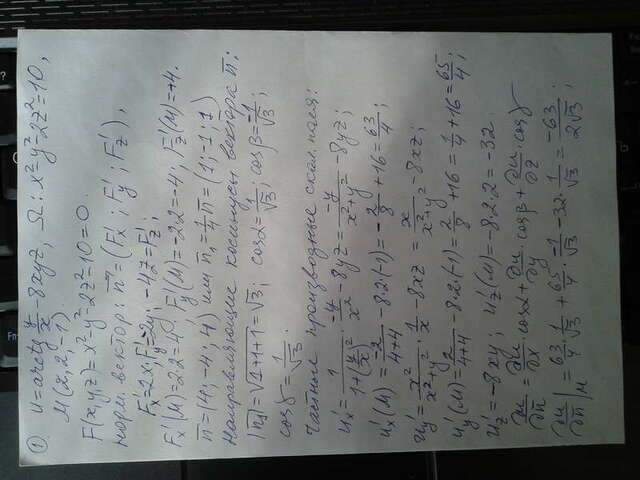 ① u = arctg y/x - 8xyz, Ω: x²-y²-2z²=10,
M(2; 2; -1)
F(x,y,z)=x²-y²-2z²-10=0.
норм. вектор: n̄=(F'x; F'y; F'z),
F'x=2x; F'y=-2y; -4z=F'z;
F'x(M)=2·2=4; F'y(M)=-2·2=-4; F'z(M)=+4.
n̄=(4; -4; 4) или n̄₁=1/4 n̄=(1; -1; 1)
Направляющие косинусы вектора n̄:
|n̄₁|=√(1+1+1)=√3; cosα=1/√3; cosβ=-1/√3;
cosγ=1/√3.
Частные производные скал. поля:
u'x=1/(1+(y/x)²)·(-y)/x²-8yz=-y/(x²+y²)-8yz;
u'x(M)=-2/(4+4)-8·2·(-1)=-2/8+16=63/4;
u'y=x²/(x²+y²)·1/x-8xz=x/(x²+y²)-8xz;
u'y(M)=2/(4+4)-8·2·(-1)=2/8+16=1/4+16=65/4;
u'z=-8xy; u'z(M)=-8·2·2=-32.
∂u/∂n̄=∂u/∂x·cosα+∂u/∂y·cosβ+∂u/∂z·cosγ
∂u/∂n̄|M=63/4·1/√3+65/4·-1/√3-32·1/√3=-63/2√3;
Fn